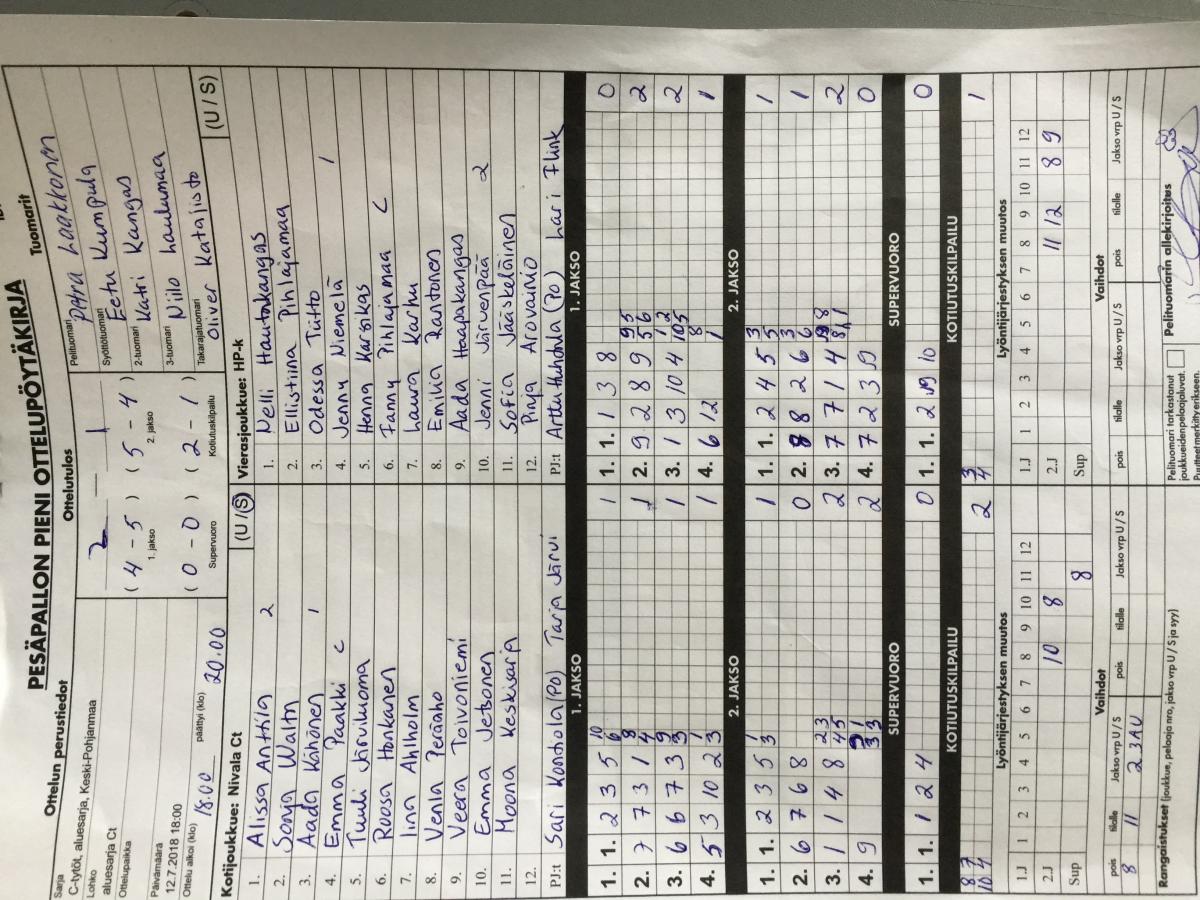 PESÄPALLON PIENI OTTELUPÖYTÄKIRJA
Ottelun perustiedot
Ottelutulos
Tuomarit
Sarja
C-tytöt, aluesarja, Keski-Pohjanmaa
Lohko
aluesarja Ct
Ottelupaikka
Päivämäärä
12.7.2018 18:00
Ottelu alkoi (klo) 18.00 päättyi (klo) 20.00
2 — 1
(4 - 5) (5 - 4)
1. jakso 2. jakso
(0 - 0) (2 - 1)
Supervuoro Kotiutuskilpailu
Pelituomari Petra Laakkonen
Syöttötuomari Eetu Kumpula
2-tuomari Katri Kangas
3-tuomari Niilo Laulumaa
Takarajatuomari Oliver Katajisto
Kotijoukkue: Nivala Ct (U / S)
1. Alissa Anttila 2
2. Sonja Waltn
3. Aada Kähönen 1
4. Emma Paakki C
5. Tuuli Järviluoma
6. Roosa Honkanen
7. Iina Ahlholm
8. Venla Peräaho
9. Veera Toivoniemi
10. Emma Jetsonen
11. Moona Keskisarja
12.
PJ:t Sari Kontiola (PO) Tarja Järvi
Vierasjoukkue: HP-K (U / S)
1. Nelli Hautakangas
2. Ellistiina Pihlajamaa
3. Odessa Tiitto
4. Jenny Niemelä 1
5. Henna Kariskas
6. Fanny Pihlajamaa C
7. Laura Karhu
8. Emilia Rantonen
9. Aada Haapakangas
10. Jenni Järvenpää 2
11. Sofia Jääskeläinen
12. Pinja Arovainio
PJ:t Arttu Huhtala (PO) Lari Flink
1. JAKSO
1. 1. 2 3 5 10 6 1
2. 7 7 3 1 8 4 1
3. 6 6 7 3 9 3 1
4. 5 3 10 2 1 3 1
2. JAKSO
1. 1. 2 3 5 1 3 1
2. 6 7 6 8 0
3. 1 1 4 8 2 3 4 5 2
4. 9 2
SUPERVUORO
1. 1. 1 2 4 0
KOTIUTUSKILPAILU
8 7
10 4
2
1. JAKSO
1. 1. 1 3 8 0
2. 9 2 8 9 2
3. 1 3 10 4 2
4. 6 12 1 1
2. JAKSO
1. 1. 2 4 5 3 5 1
2. 8 8 2 6 3 6 1
3. 7 7 1 4 2
4. 7 2 3 0
SUPERVUORO
1. 1. 2 10 0
KOTIUTUSKILPAILU
3
4
1
Lyöntijärjestyksen muutos
1.J 1 2 3 4 5 6 7 8 9 10 11 12
2.J 10 8
Sup 8
Lyöntijärjestyksen muutos
1.J 1 2 3 4 5 6 7 8 9 10 11 12
2.J 11 12 8 9
Sup
Vaihdot
pois tilalle Jakso vrp U / S pois tilalle Jakso vrp U / S
8 11 2 3AU
Vaihdot
pois tilalle Jakso vrp U / S pois tilalle Jakso vrp U / S
Rangaistukset (joukkue, pelaaja nro, jakso vrp U / S ja syy)
Pelituomari tarkastanut
joukkueidenpelaajaluvat.
Puutteet merkityerikseen.
Pelituomarin allekirjoitus